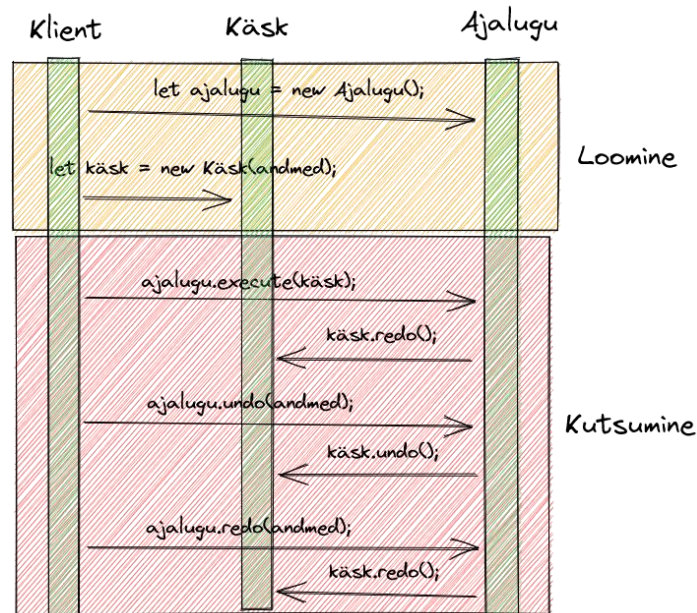 Klient
Käsk
Ajalugu
let ajalugu = new Ajalugu();
let käsk = new Käsk(andmed);
Loomine
ajalugu.execute(käsk);
käsk.redo();
ajalugu.undo(andmed);
Kutsumine
käsk.undo();
ajalugu.redo(andmed);
käsk.redo();